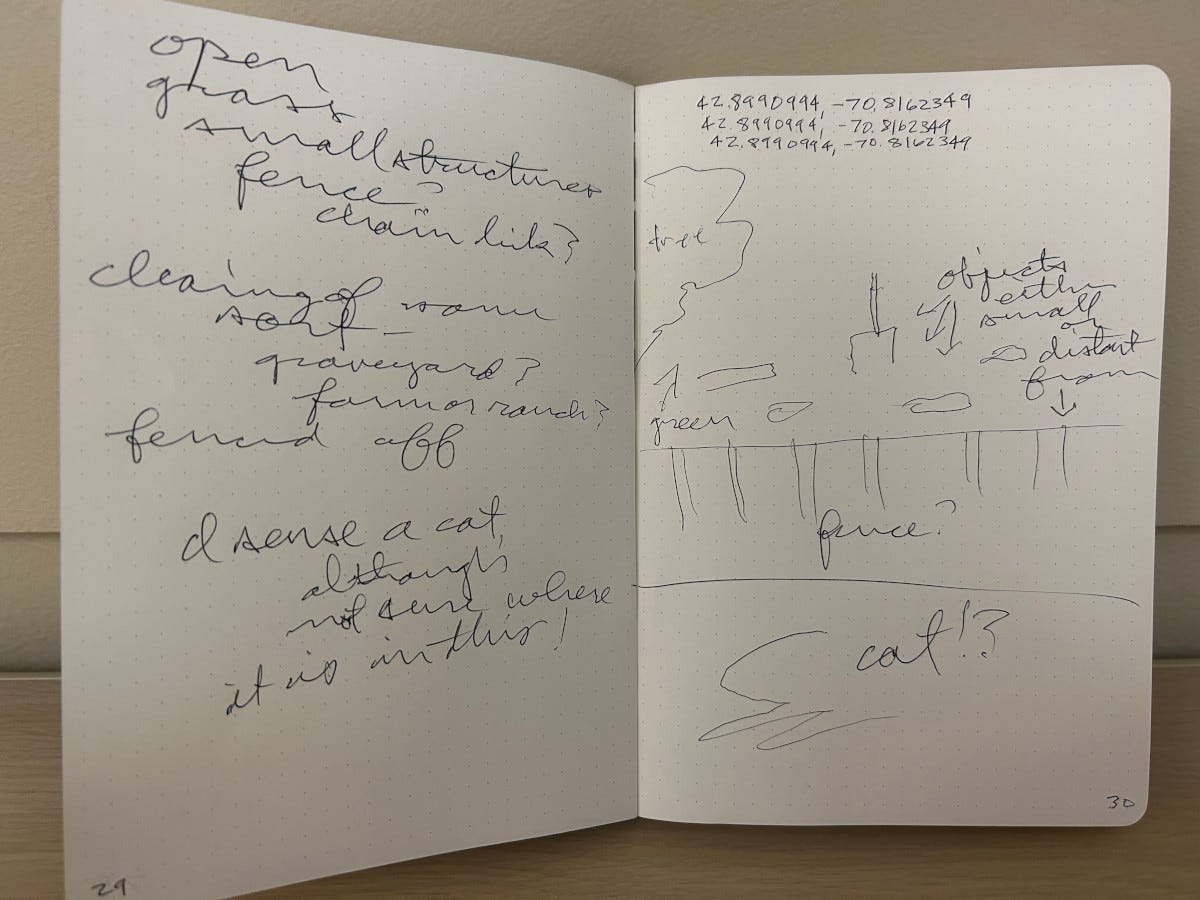 open
grass
small structures
fence?
chain link?
clearing of some
sort –
graveyard?
farm or ranch?
fenced off
I sense a cat,
although
not sure where
it is in this!
29
42.8990994, -70.8162349
42.8990994, -70.8162349
42.8990994, -70.8162349
tree
objects
either
small
or
distant
from
green
fence?
cat!?
30